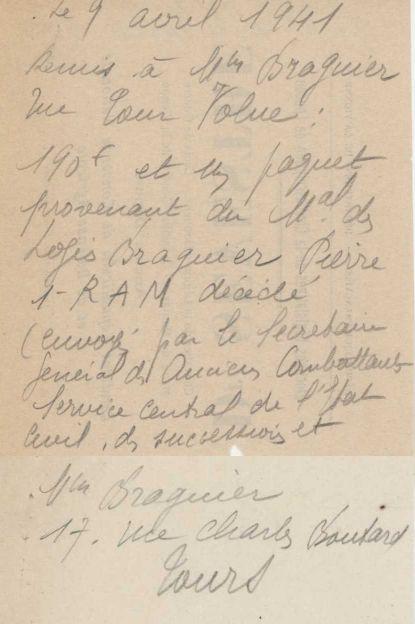 Le 9 avril 1941
Remis à Mme Braguier
rue Tour Volue :
190f et un paquet
provenant du Mal des
Logis Braguier Pierre
1-RAM décédé
(envoyé par le Secrétaire
Général des Anciens Combattants
Service central de l'Etat
Civil, des successions et
Mme Braguier
17. rue Charles Boutard
Tours